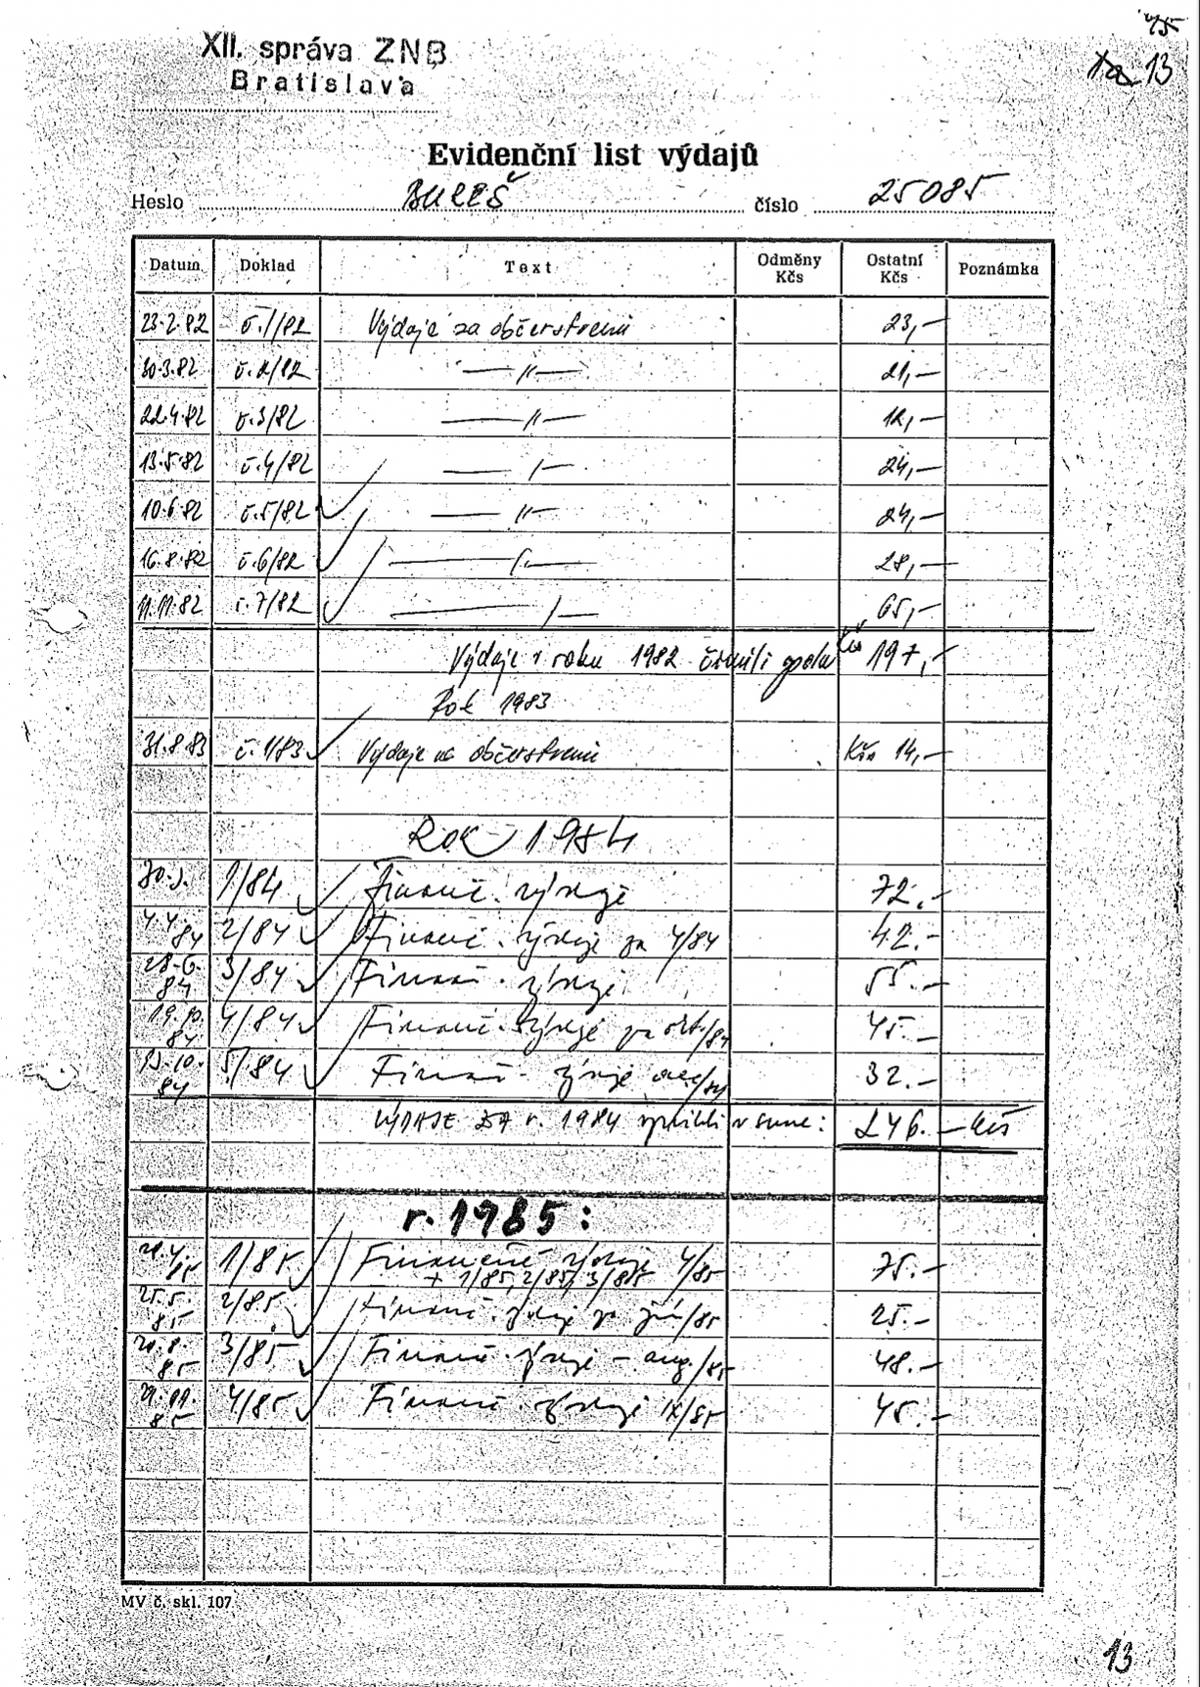 XII. správa ZNB
Bratislava
13
Evidenční list výdajů
Heslo BUREŠ číslo 25085
Datum Doklad Text Odměny Kčs Ostatní Kčs Poznámka
23.2.82 č.1/82 Výdaje za občerstvení 23,-
30.3.82 č.2/82 —"— 21,-
22.4.82 č.3/82 —"— 12,-
13.5.82 č.4/82 —"— 24,-
10.6.82 č.5/82 —"— 24,-
16.8.82 č.6/82 —"— 28,-
11.11.82 č.7/82 —"— 65,-
Výdaje v roku 1982 činili spolu Kčs 197,-
Rok 1983
31.8.83 č.1/83 Výdaje za občerstvení Kčs 14,-
Rok 1984
1/84 Financ. výdaje 72.-
4.4.84 2/84 Financ. výdaje za 4/84 42.-
28.6.84 3/84 Financ. výdaje 55.-
84 4/84 Financ. výdaje za /84 45.-
10.84 5/84 Financ. výdaje /84 32.-
VÝDAJE ZA r. 1984 v sume: 246.- Kčs
r. 1985:
4.85 1/85 Finančné výdaje 4/85 75.-
+ 1/85, 2/85, 3/85
25.5.85 2/85 Financ. výdaje za jún/85 25.-
20.8.85 3/85 Financ. výdaje - aug./85 48.-
85 4/85 Financ. výdaje IX/85 45.-
MV č. skl. 107
13